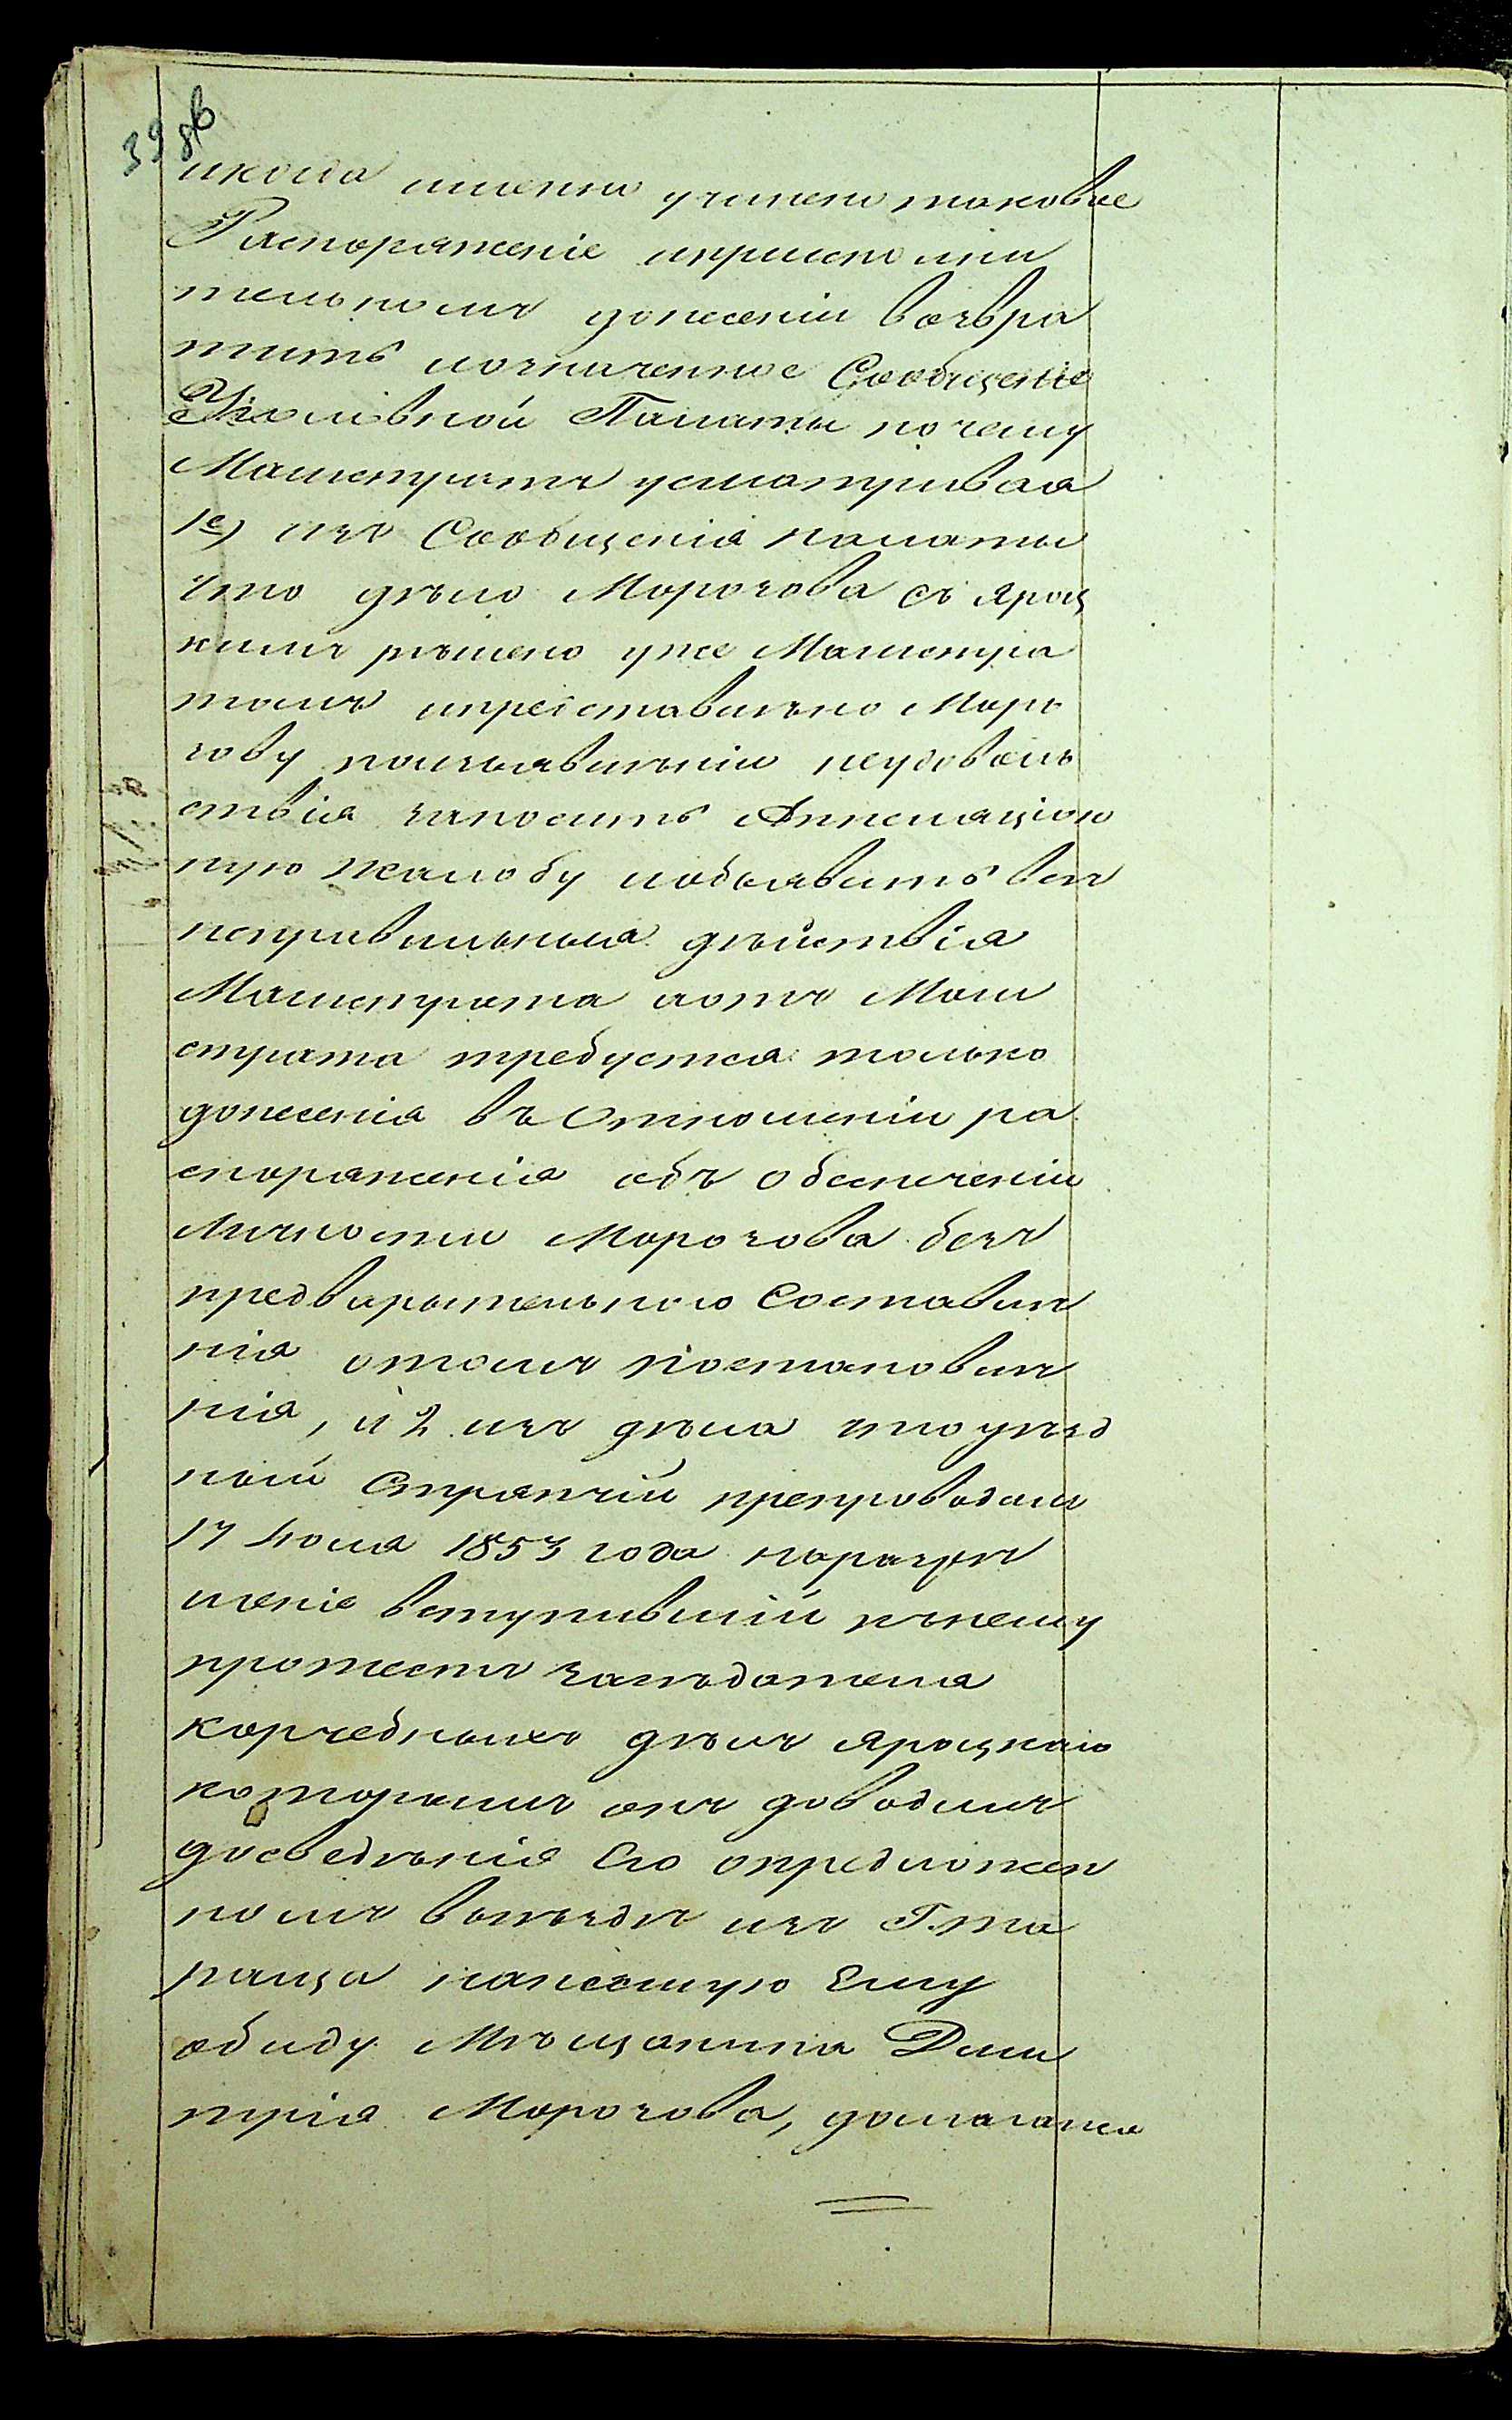 39 об
икогда именно учинено таковое
Распоряженіе иприисполни
тельномъ донесеніи возвра
тить иозначенное Сообщеніе
Уголовной Палаты почему
Магистратъ усматривая
1е) изъ Сообщенія палаты
что дѣло Морозова съ Яроц
кимъ рѣшено уже Магистра
томъ ипредставлѣно Моро
зову поизъявлѣніи неудоволь
ствія заносить Аппеляціон
ную жалобу иобъявить все
неправильныя дѣйствія
Магистрата аотъ Маги
страта требуется только
донесенія въ Отношеніи ра
споряженія объ обеспеченіи
Личности Морозова безъ
предварительнаго Составле
нія отомъ постановле
нія, и 2. изъ дѣла что уѣзд
ный Стряпчій препроводилъ
17 Іюля 1853 года наразрѣ
шеніе вступившій кънему
протестъ засѣдателя
корчебныхъ дѣлъ Яроцкаго
которымъ онъ доводитъ
досведѣнія Его опредложен
номъ выѣздѣ изъ Г. Та
раща нанесенную Ему
обиду Мѣщанина Дми
трія Морозова, домагался